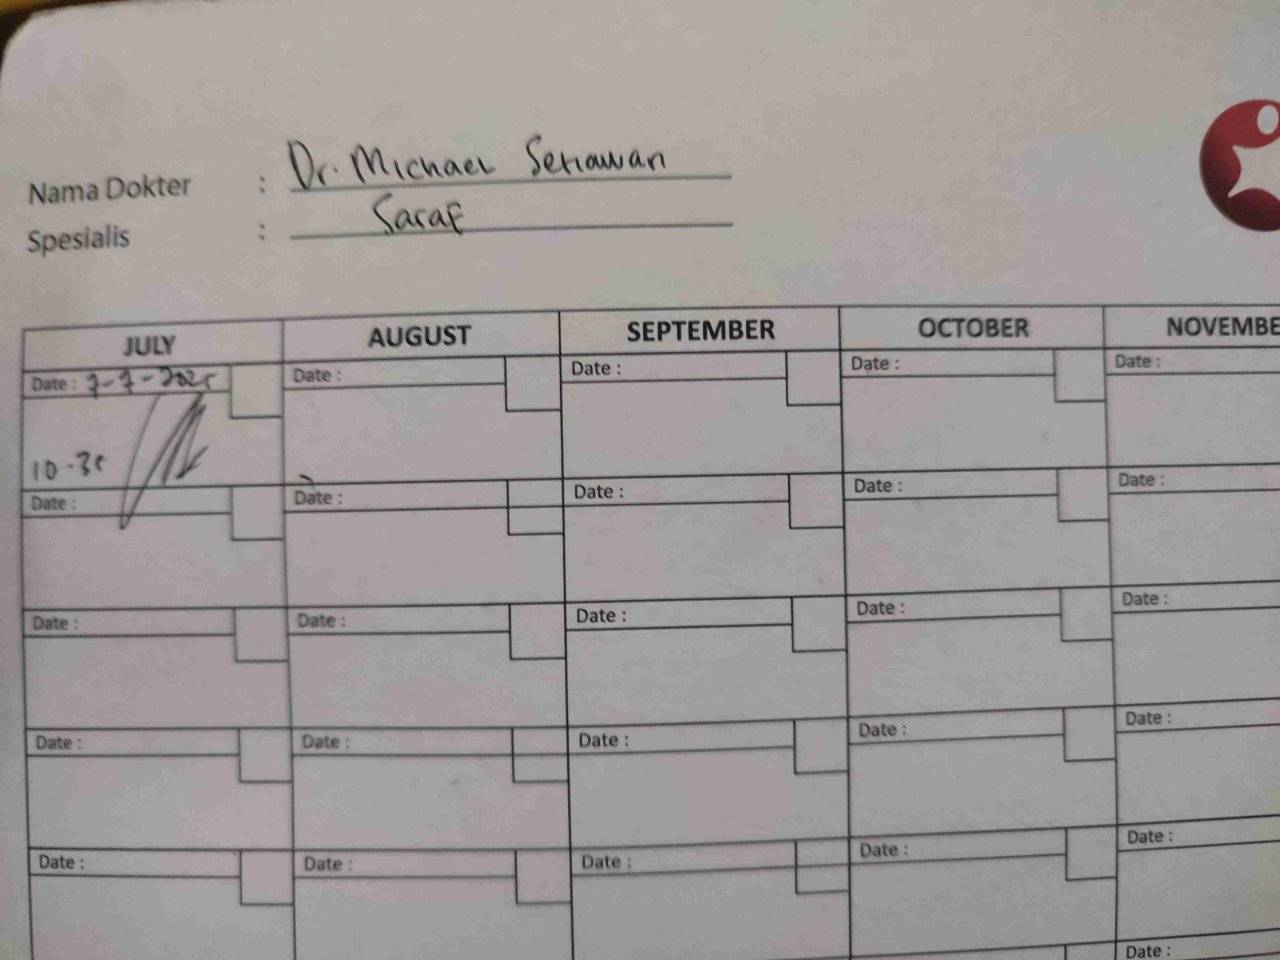 Nama Dokter : Dr. Michael Setiawan
Spesialis : Saraf
JULY AUGUST SEPTEMBER OCTOBER NOVEMBE
Date : 7-7-2025 Date : Date : Date : Date :
10-30
Date : Date : Date : Date : Date :
Date : Date : Date : Date : Date :
Date : Date : Date : Date : Date :
Date : Date : Date : Date : Date :
Date :